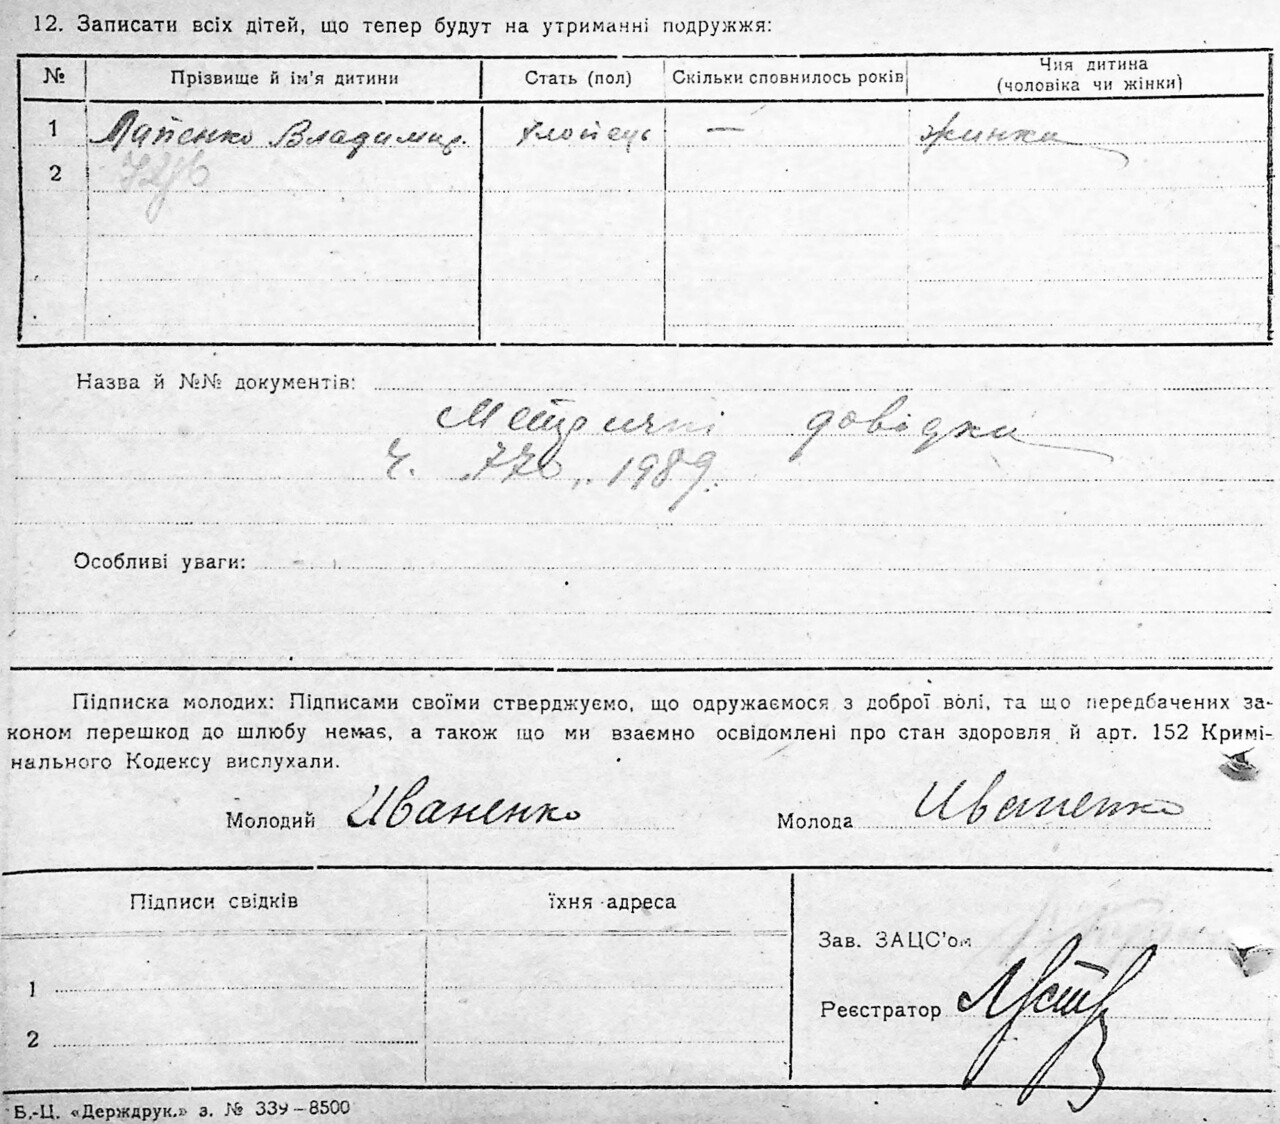 12. Записати всіх дітей, що тепер будут на утриманні подружжя:
№ Прізвище й ім'я дитини Стать (пол) Скільки сповнилось років Чия дитина (чоловіка чи жінки)
1 Владимир. хлопець — жинки
2
Назва й №№ документів:
Метричні довідки
ч. 770, 1989.
Особливі уваги:
Підписка молодих: Підписами своїми стверджуємо, що одружаємося з доброї волі, та що передбачених за-
коном перешкод до шлюбу немає, а також що ми взаємно освідомлені про стан здоровля й арт. 152 Кримі-
нального Кодексу вислухали.
Молодий Иваненко Молода Иваненко
Підписи свідків їхня адреса
Зав. ЗАЦС'ом
1
Реєстратор
2
Б.-Ц. «Держдрук.» з. № 339—8500